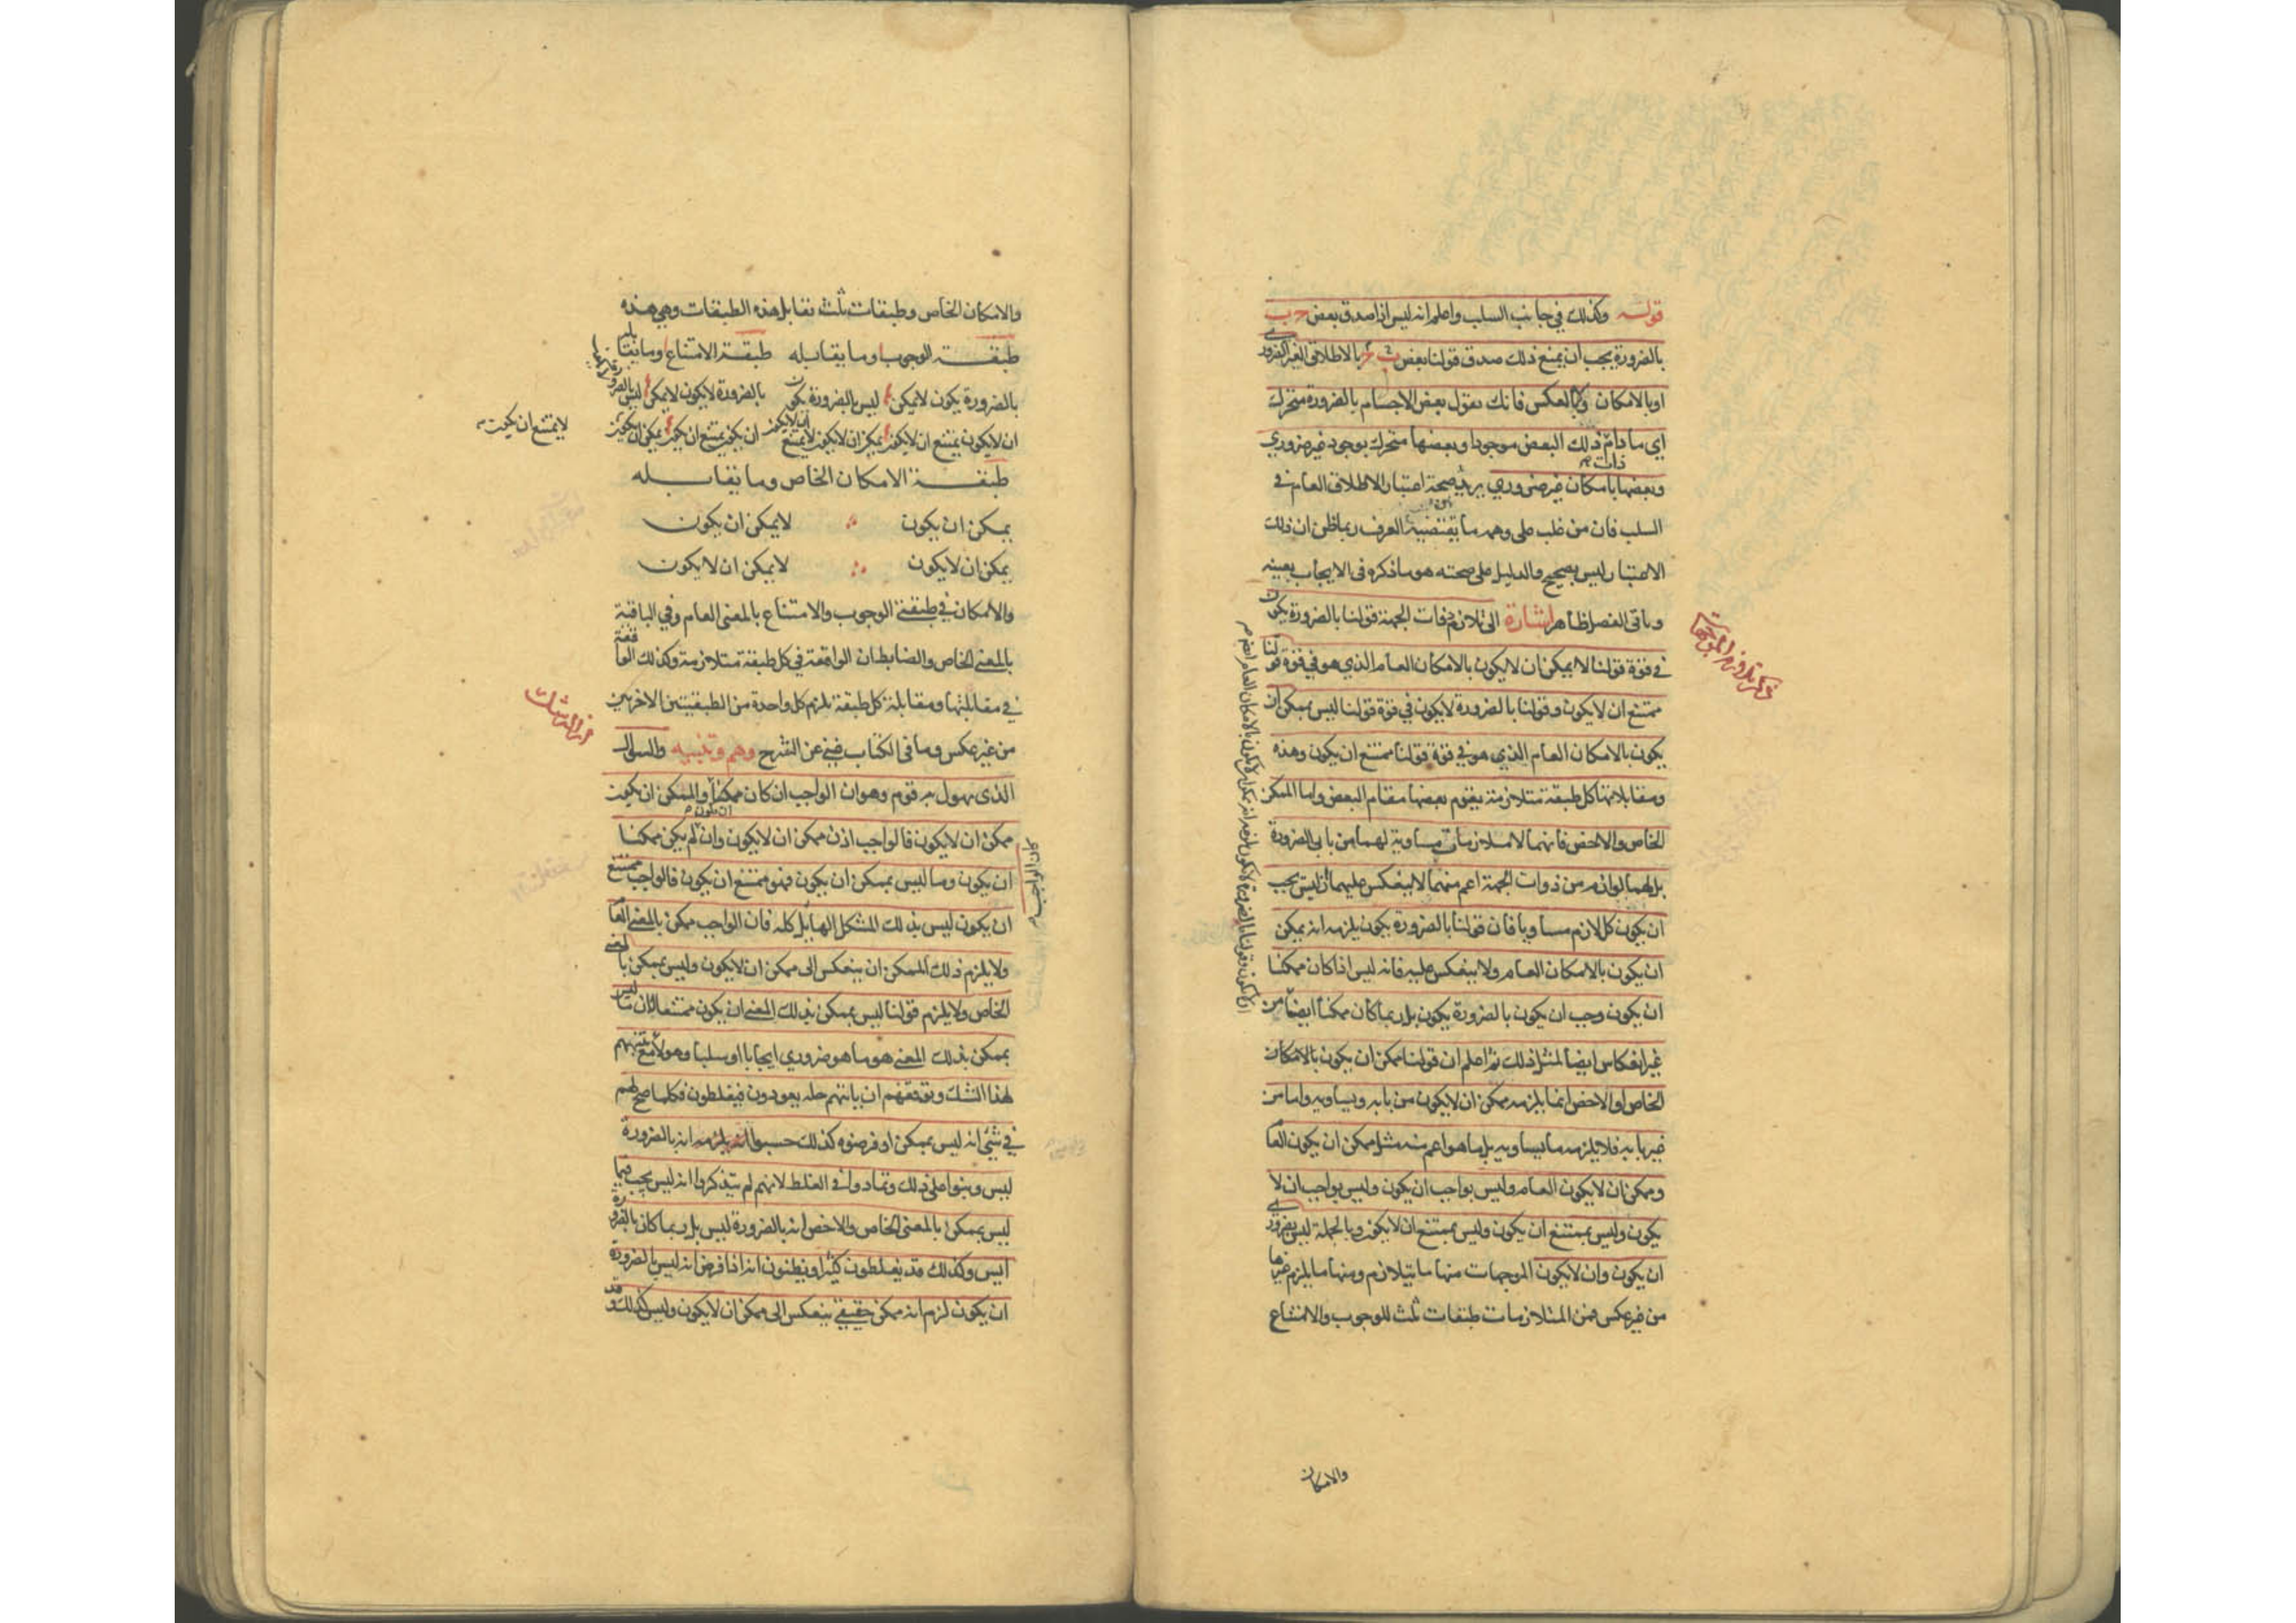 قوله وكذلك في جانب السلب واعلم انه ليس اذا صدق بعض ج ب
بالضرورة يجب ان يمنع ذلك صدق قولنا بعض ب بالاطلاق الغير الضروري
او بالامكان وبالعكس فانك تقول بعض الاجسام بالضرورة متحرك
اي ما دام ذات ذلك البعض موجودا وبعضها متحرك بوجود غير ضروري
وبعضها بامكان غير ضروري يريد صحة اعتبار الاطلاق العام في
السلب فان من غلب على وهمه ما يقتضيه العرف ربما ظن ان ذلك
الاعتبار ليس بصحيح والدليل على صحته هو ما ذكره في الايجاب بعينه
وباقي الفصل ظاهر اشارة الى تلازم ذوات الجهة قولنا بالضرورة يكون
في قوة قولنا لا يمكن ان لا يكون بالامكان العام الذي هو في قوة قولنا
ممتنع ان لا يكون وقولنا بالضرورة لا يكون في قوة قولنا ليس بممكن ان
يكون بالامكان العام الذي هو في قوة قولنا ممتنع ان يكون وهذه
ومقابلاتها كل طبقة متلازمة يقوم بعضها مقام البعض واما الممكن
الخاص والاخص فانهما لا متلازمات مساوية لهما من بابي الضرورة
بل لهما لوازم من ذوات الجهة اعم منهما لا ينعكس عليهما اذ ليس يجب
ان يكون كل لازم مساويا فان قولنا بالضرورة يكون يلزمه انه يمكن
ان يكون بالامكان العام ولا ينعكس عليه فانه ليس اذا كان ممكنا
ان يكون وجب ان يكون بالضرورة يكون بل ربما كان ممكنا ايضا من
غير انعكاس ايضا لمثل ذلك ثم اعلم ان قولنا ممكن ان يكون بالامكان
الخاص او الاخص انما يلزمه ممكن ان لا يكون من بابه ويساويه واما من
غير بابه فلا يلزمه ما يساويه بل ما هو اعم منه مثل ممكن ان يكون العام
وممكن ان لا يكون العام وليس بواجب ان يكون وليس بواجب ان لا
يكون وليس بممتنع ان يكون وليس بممتنع ان لا يكون وبالجملة ليس بضروري
ان يكون وان لا يكون الموجهات منها ما يتلازم ومنها ما يلزم غيرها
من غير عكس فمن المتلازمات طبقات ثلث للوجوب والامتناع
والامكان
ذكر تلازم الموجهات
والامكان الخاص وطبقات ثلث تقابل هذه الطبقات وهي هذه
طبقة الوجوب وما يقابله طبقة الامتناع وما يقابله
بالضرورة يكون لا يمكن ليس بالضرورة يكون بالضرورة لا يكون لا يمكن ليس بالضرورة
ان لا يكون يمتنع ان لا يكون يمكن ان لا يكون لا يمتنع ان لا يكون ان يكون يمتنع ان يكون يمكن ان يكون
لا يمتنع ان يكون
طبقة الامكان الخاص وما يقابله
يمكن ان يكون لا يمكن ان يكون
يمكن ان لا يكون لا يمكن ان لا يكون
والامكان في طبقتي الوجوب والامتناع بالمعنى العام وفي الباقية
بالمعنى الخاص والضابط ان الواقعة في كل طبقة متلازمة وكذلك الواقعة
في مقابلتها ومقابلة كل طبقة يلزم كل واحدة من الطبقتين الاخريين
من غير عكس وما في الكتاب غني عن الشرح وهم وتنبيه والسؤال
الذي يهول به قوم وهو ان الواجب ان كان ممكنا ان يكون والممكن ان يكون
ممكن ان لا يكون فالواجب اذن ممكن ان لا يكون وان لم يكن ممكنا
كان الواجب
ان يكون وما ليس بممكن ان يكون فهو ممتنع ان يكون فالواجب ممتنع
ان يكون ليس بذلك المشكل الهايل كله فان الواجب ممكن بالمعنى العام
ولا يلزم ذلك الممكن ان ينعكس الى ممكن ان لا يكون وليس بممكن بالمعنى
الخاص ولا يلزم قولنا ليس بممكن بذلك المعنى ان يكون ممتنعا لان ما ليس
بممكن بذلك المعنى هو ما هو ضروري ايجابا او سلبا وهولاء مع تنبههم
لهذا الشك وتوقعهم ان ياتيهم حله يعودون فيغلطون فكلما صح لهم
في شئ انه ليس بممكن او فرضوه كذلك حسبوا انه يلزمه انه بالضرورة
ليس وبنوا على ذلك وتمادوا في الغلط لانهم لم يتذكروا انه ليس يجب فيما
ليس بممكن بالمعنى الخاص والاخص انه بالضرورة ليس بل ربما كان بالضرورة
ايس وكذلك قد يغلطون كثيرا ويظنون انه اذا فرض انه ليس بالضرورة
ان يكون لزم انه ممكن حقيقي ينعكس الى ممكن ان لا يكون وليس كذلك وقد